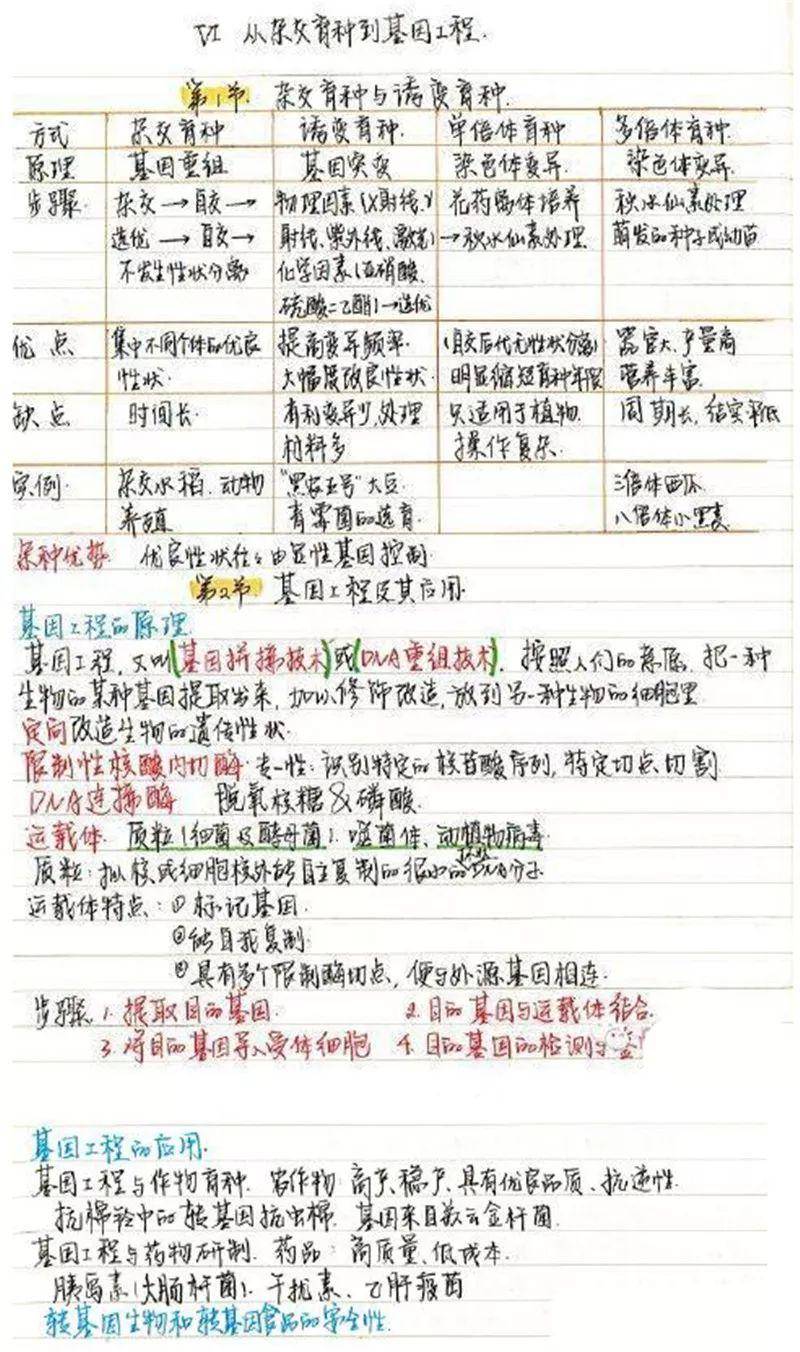 VI 从杂交育种到基因工程.
第1节. 杂交育种与诱变育种.
方式 杂交育种 诱变育种. 单倍体育种 多倍体育种.
原理 基因重组 基因突变 染色体变异. 染色体变异.
步骤. 杂交→自交→ 物理因素(X射线、γ 花药离体培养 秋水仙素处理
选优→自交→ 射线、紫外线、激光) →秋水仙素处理. 萌发的种子或幼苗
不发生性状分离 化学因素(亚硝酸、
硫酸二乙酯)→选优
优点 集中不同个体的优良 提高变异频率. (自交后代无性状分离) 器官大、产量高
性状. 大幅度改良性状. 明显缩短育种年限 营养丰富.
缺点 时间长. 有利变异少,处理 只适用于植物. 周期长,结实率低
材料多 操作复杂.
实例. 杂交水稻. 动物 "黑农五号"大豆. 三倍体西瓜.
养殖 青霉菌的选育. 八倍体小黑麦
杂种优势. 优良性状往往由显性基因控制.
第2节 基因工程及其应用.
基因工程的原理.
基因工程,又叫(基因拼接技术)或(DNA重组技术). 按照人们的意愿,把一种
生物的某种基因提取出来,加以修饰改造,放到另一种生物的细胞里
定向改造生物的遗传性状.
限制性核酸内切酶. 专一性:识别特定的核苷酸序列,特定切点切割
DNA连接酶 脱氧核糖&磷酸.
运载体. 质粒(细菌及酵母菌). 噬菌体、动植物病毒.
质粒:拟核或细胞核外能自主复制的很小的环状DNA分子
运载体特点:①标记基因.
②能自我复制.
③具有多个限制酶切点,便与外源基因相连.
步骤 1.提取目的基因. 2.目的基因与运载体结合.
3.将目的基因导入受体细胞 4.目的基因的检测与
基因工程的应用.
基因工程与作物育种. 农作物:高产、稳产、具有优良品质、抗逆性.
抗棉铃虫的转基因抗虫棉. 基因来自苏云金杆菌.
基因工程与药物研制. 药品:高质量、低成本.
胰岛素(大肠杆菌). 干扰素、乙肝疫苗
转基因生物和转基因食品的安全性.